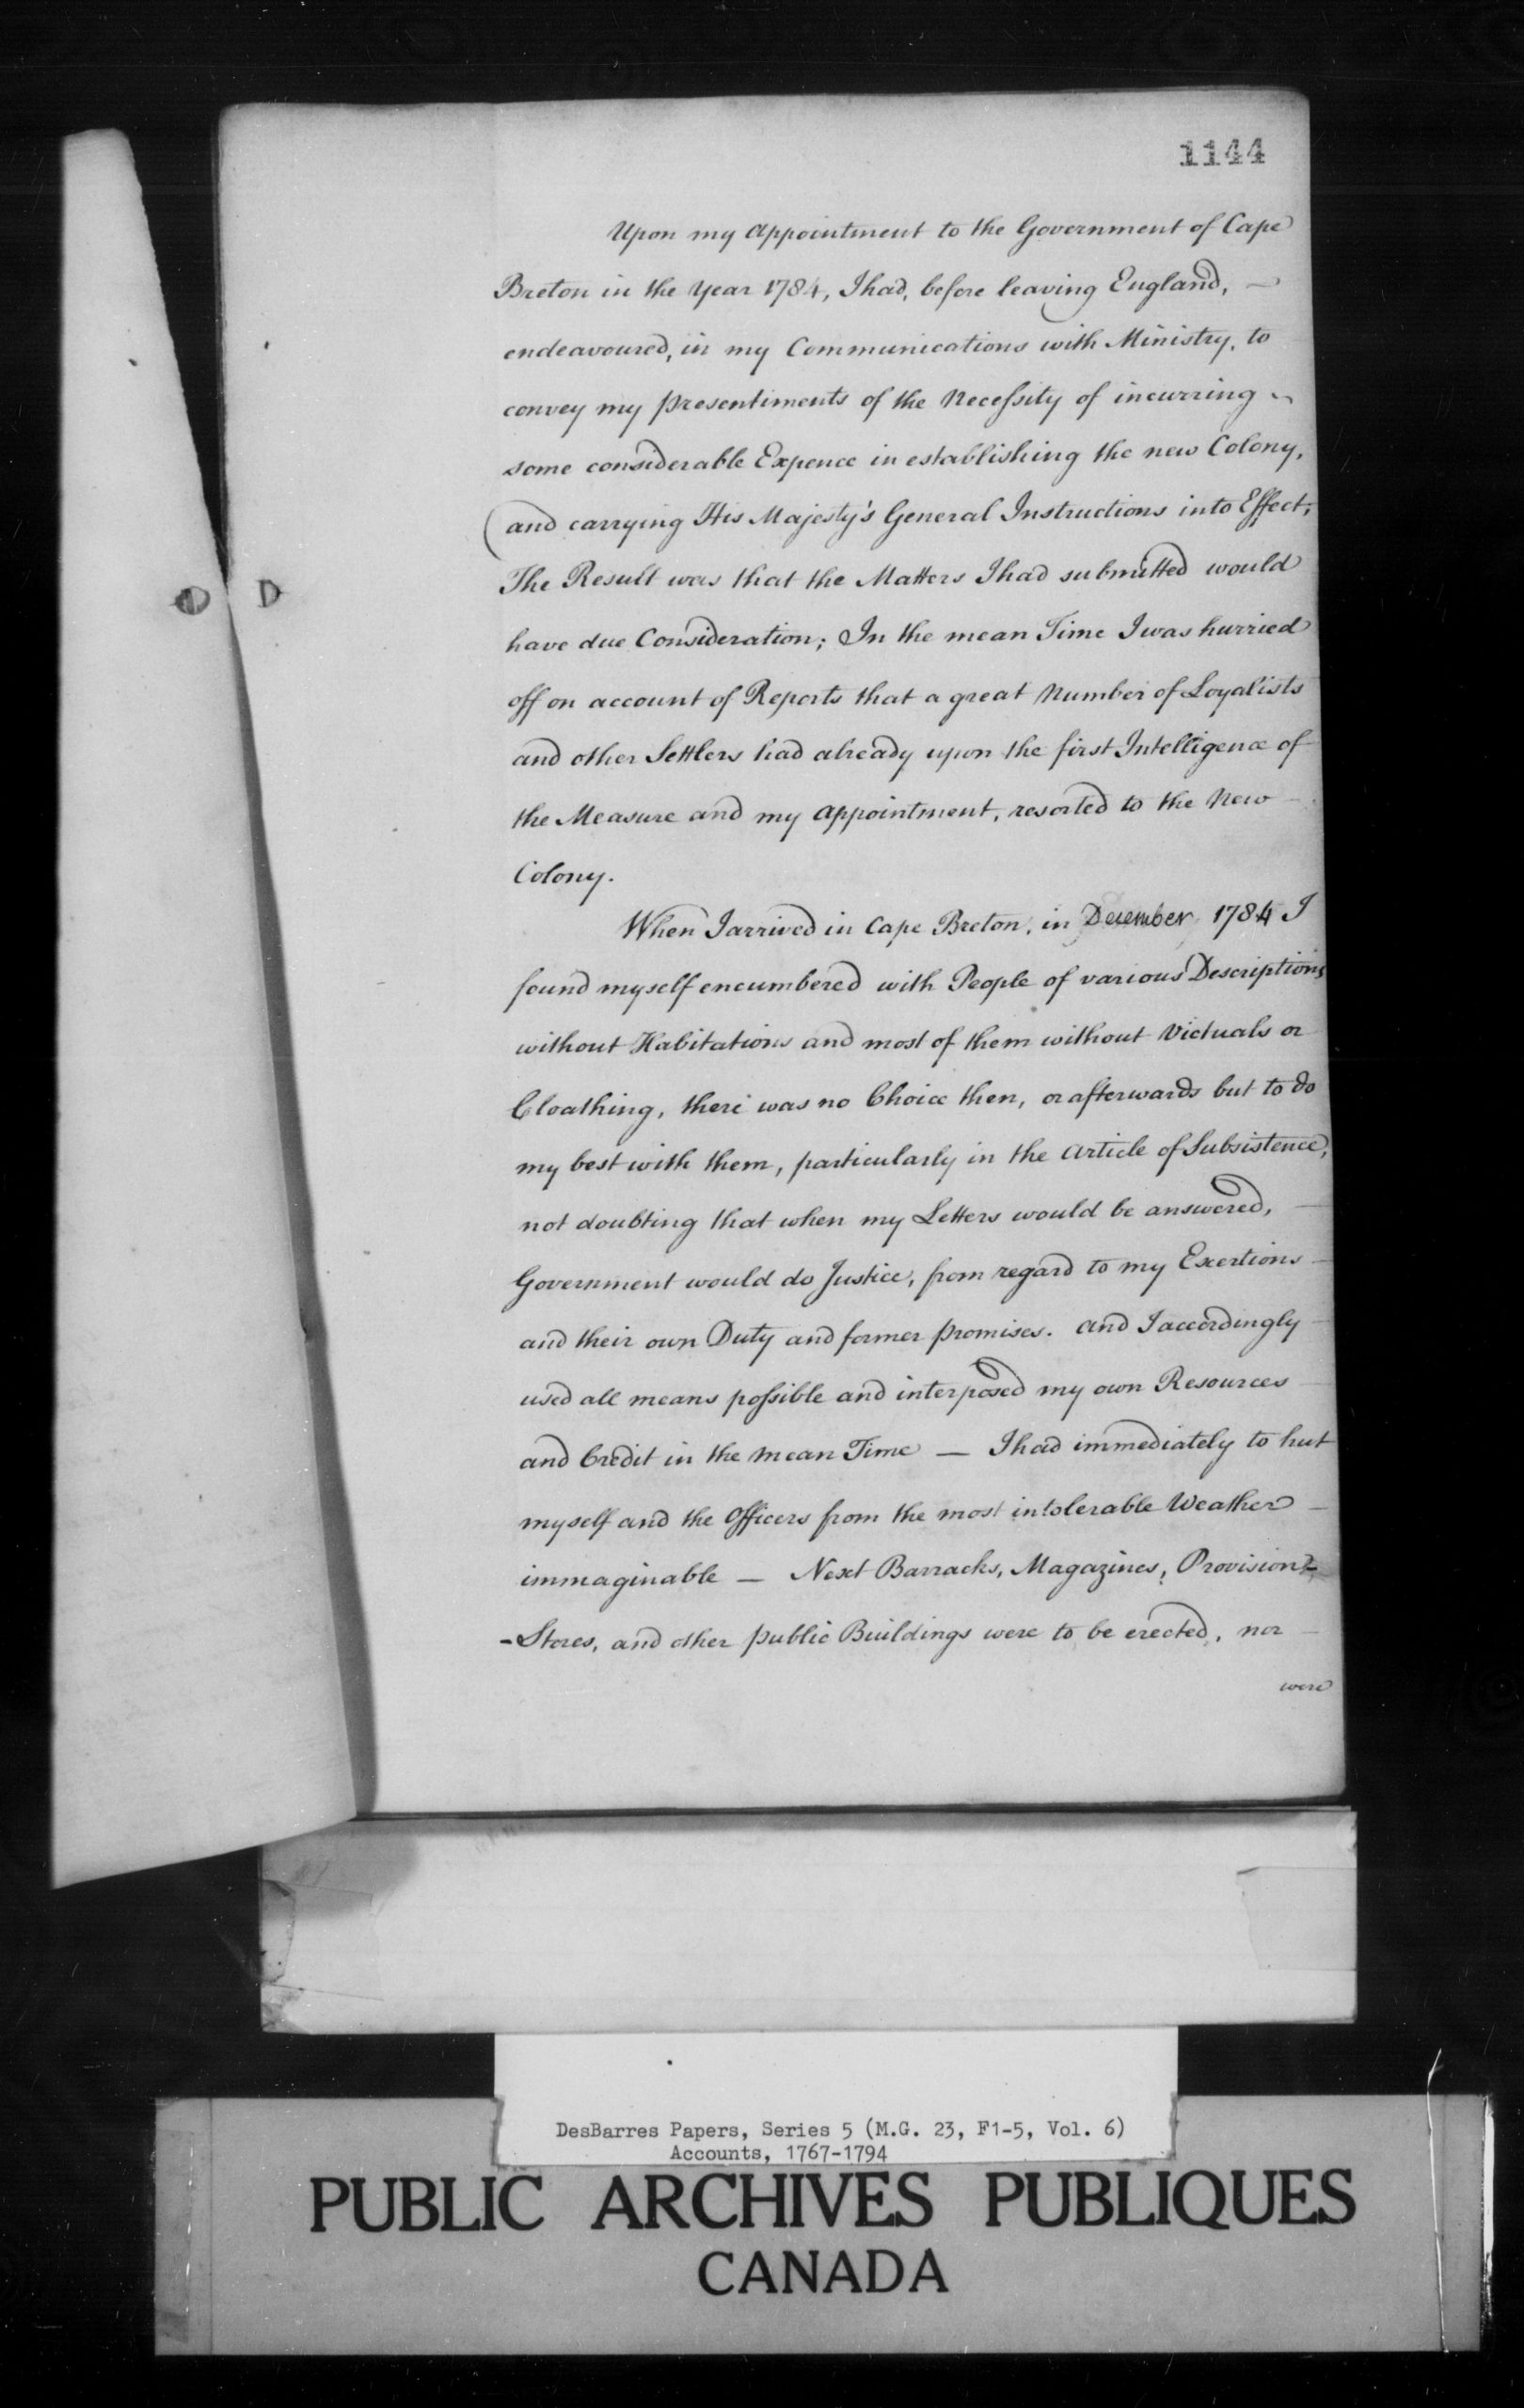 1144
Upon my Appointment to the Government of Cape
Breton in the Year 1784, I had, before leaving England, —
endeavoured, in my Communications with Ministry, to
convey my presentiments of the Necessity of incurring ~
some considerable Expence in establishing the new Colony,
and carrying His Majesty's General Instructions into Effect;
The Result was that the Matters I had submitted would
have due Consideration; In the mean Time I was hurried
off on account of Reports that a great Number of Loyalists
and other Settlers had already upon the first Intelligence of
the Measure and my Appointment, resorted to the New —
Colony.
When I arrived in Cape Breton, in December 1784 I
found myself encumbered with People of various Descriptions
without Habitations and most of them without Victuals or
Cloathing, there was no Choice then, or afterwards but to do
my best with them, particularly in the Article of Subsistence,
not doubting that when my Letters would be answered, —
Government would do Justice, from regard to my Exertions —
and their own Duty and former promises. And I accordingly —
used all means possible and interposed my own Resources —
and Credit in the mean Time — I had immediately to hut
myself and the Officers from the most intolerable Weather —
immaginable — Next Barracks, Magazines, Provision-
-Stores, and other public Buildings were to be erected, nor —
were
D D
DesBarres Papers, Series 5 (M.G. 23, F1-5, Vol. 6)
Accounts, 1767-1794
PUBLIC ARCHIVES PUBLIQUES
CANADA